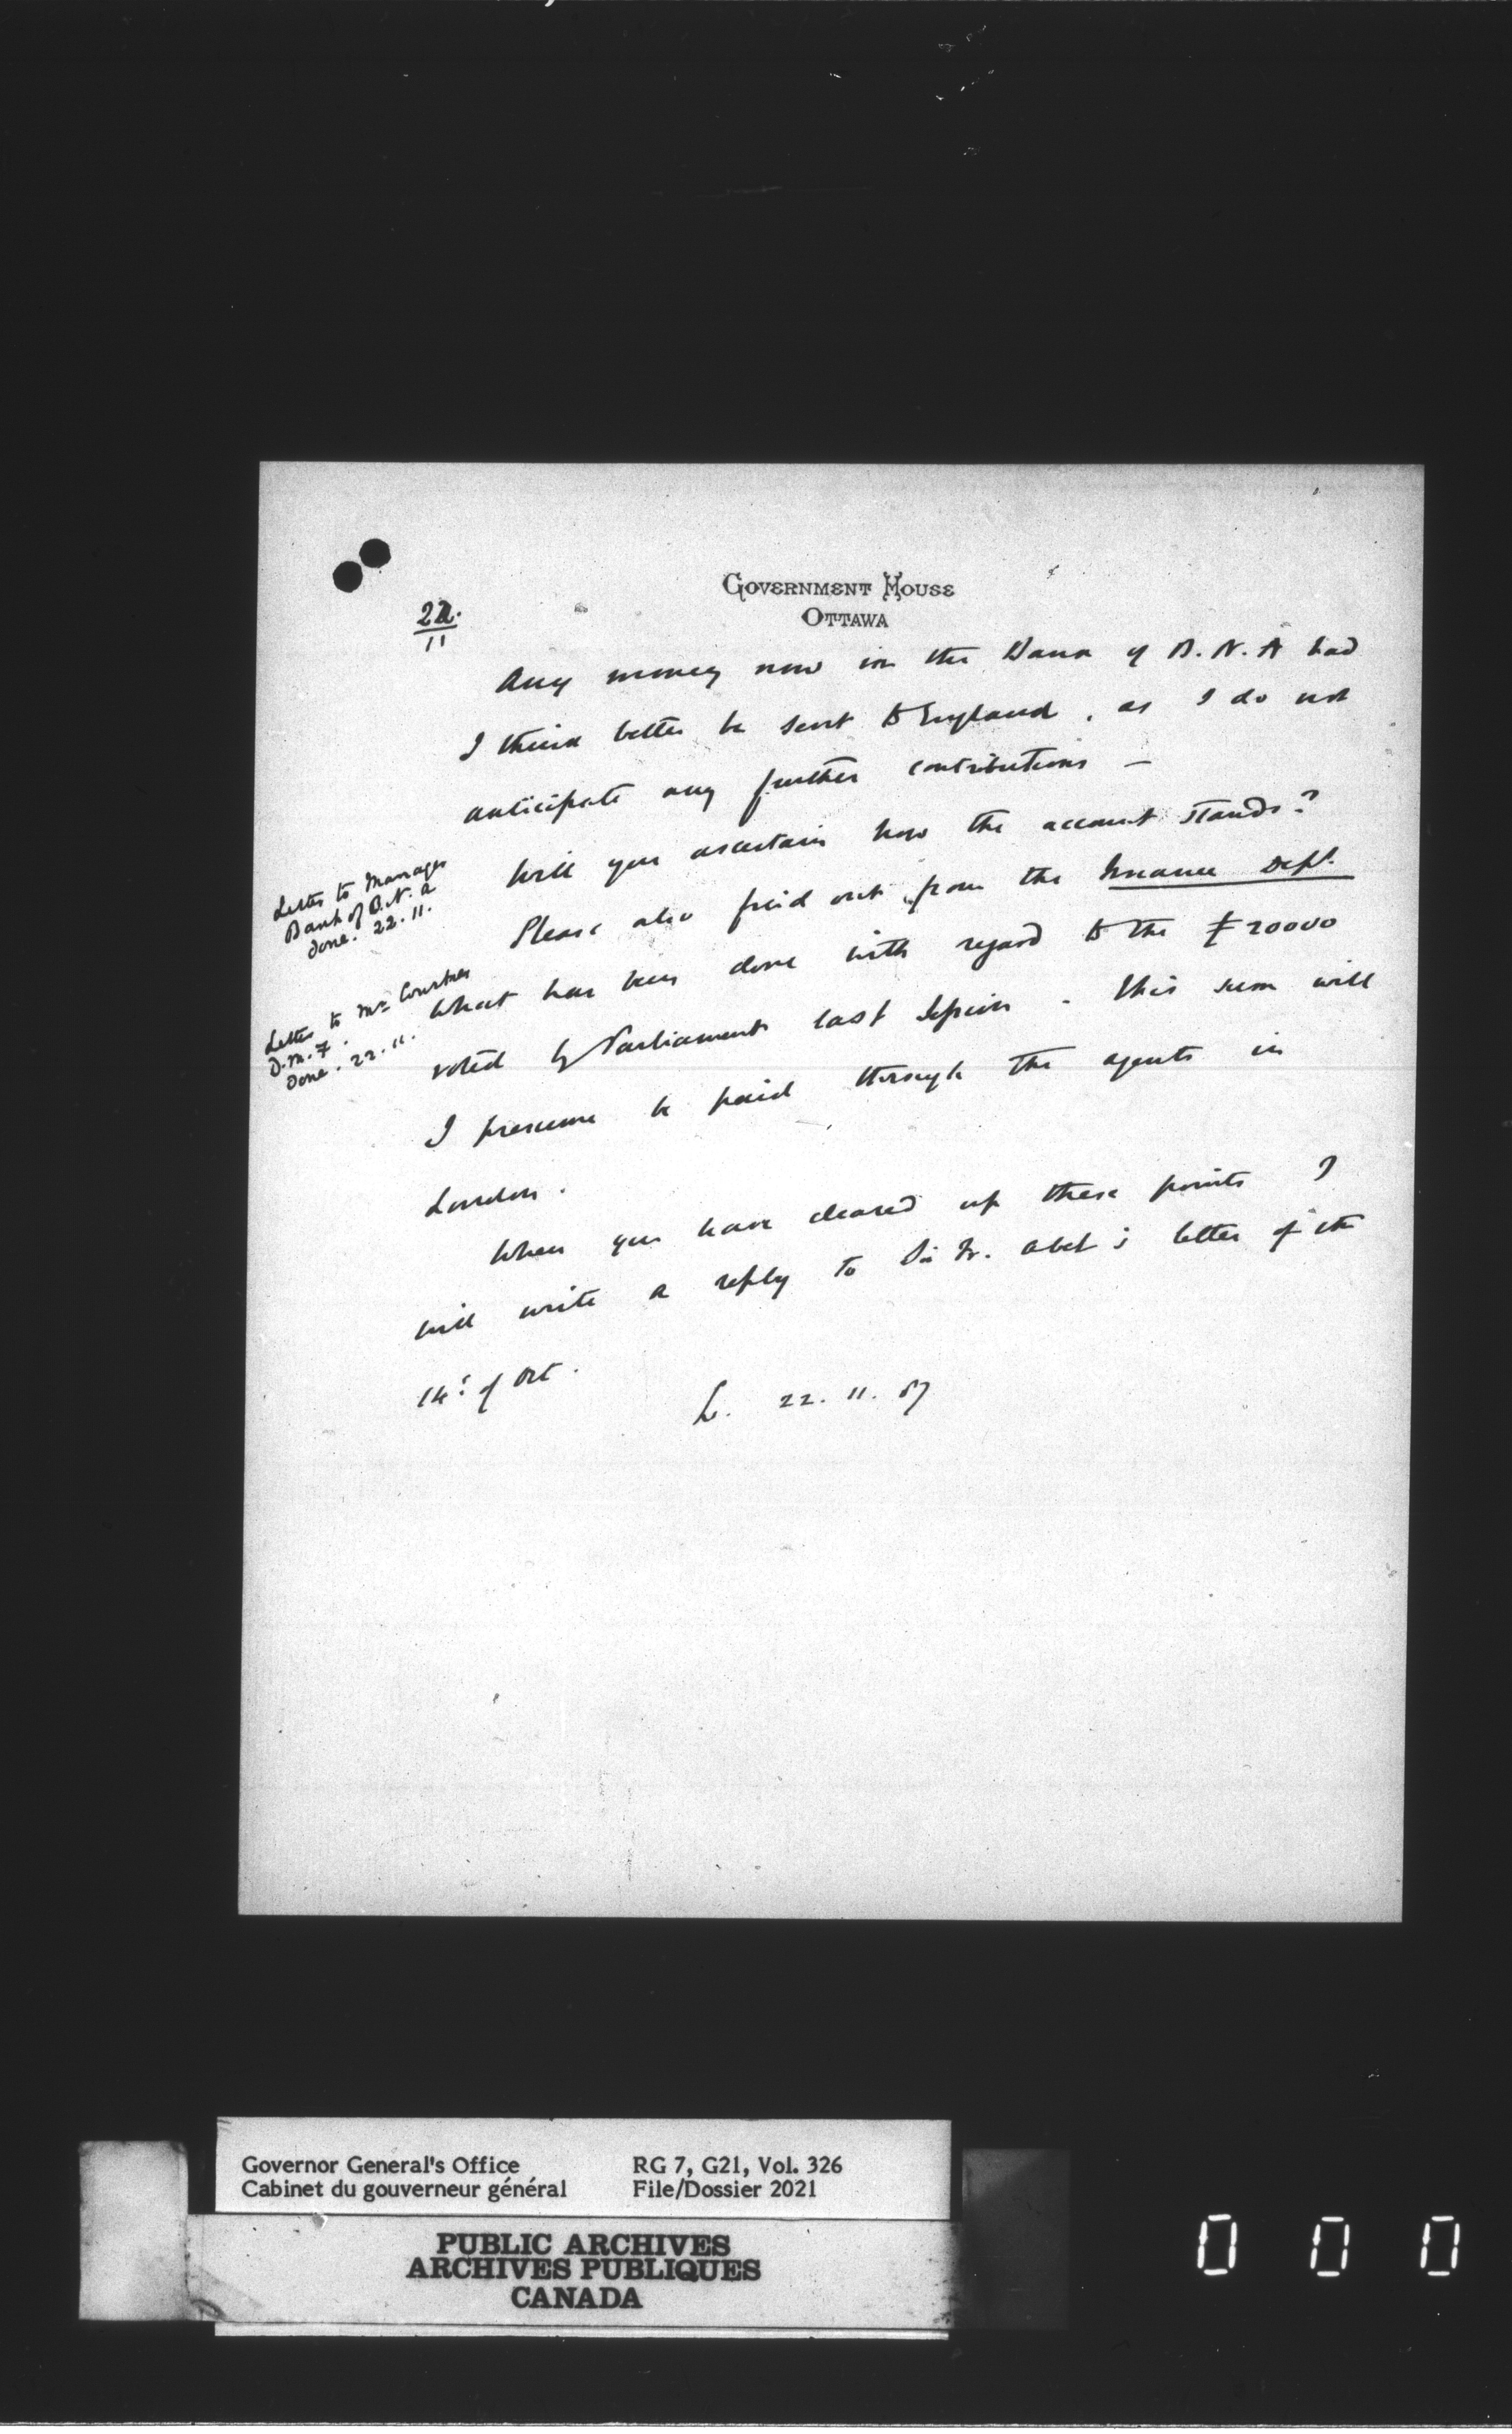 GOVERNMENT HOUSE
OTTAWA
22.
11
Any money now in the Bank of B.N.A had
I think better be sent to England, as I do not
anticipate any further contributions —
Will you ascertain how the account stands?
Please also find out from the Finance Dept.
what has been done with regard to the £20000
voted by Parliament last Session. This sum will
I presume be paid through the agents in
London.
When you have cleared up these points I
will write a reply to Sir F. Abel's letter of the
14th of Oct.
L. 22. 11. 87
Letter to Manager
Bank of B.N.A
Done. 22.11.
Letter to Mr Courtney
D.M.F.
Done. 22.11.
Governor General's Office
Cabinet du gouverneur général
RG 7, G21, Vol. 326
File/Dossier 2021
PUBLIC ARCHIVES
ARCHIVES PUBLIQUES
CANADA
0 0 0